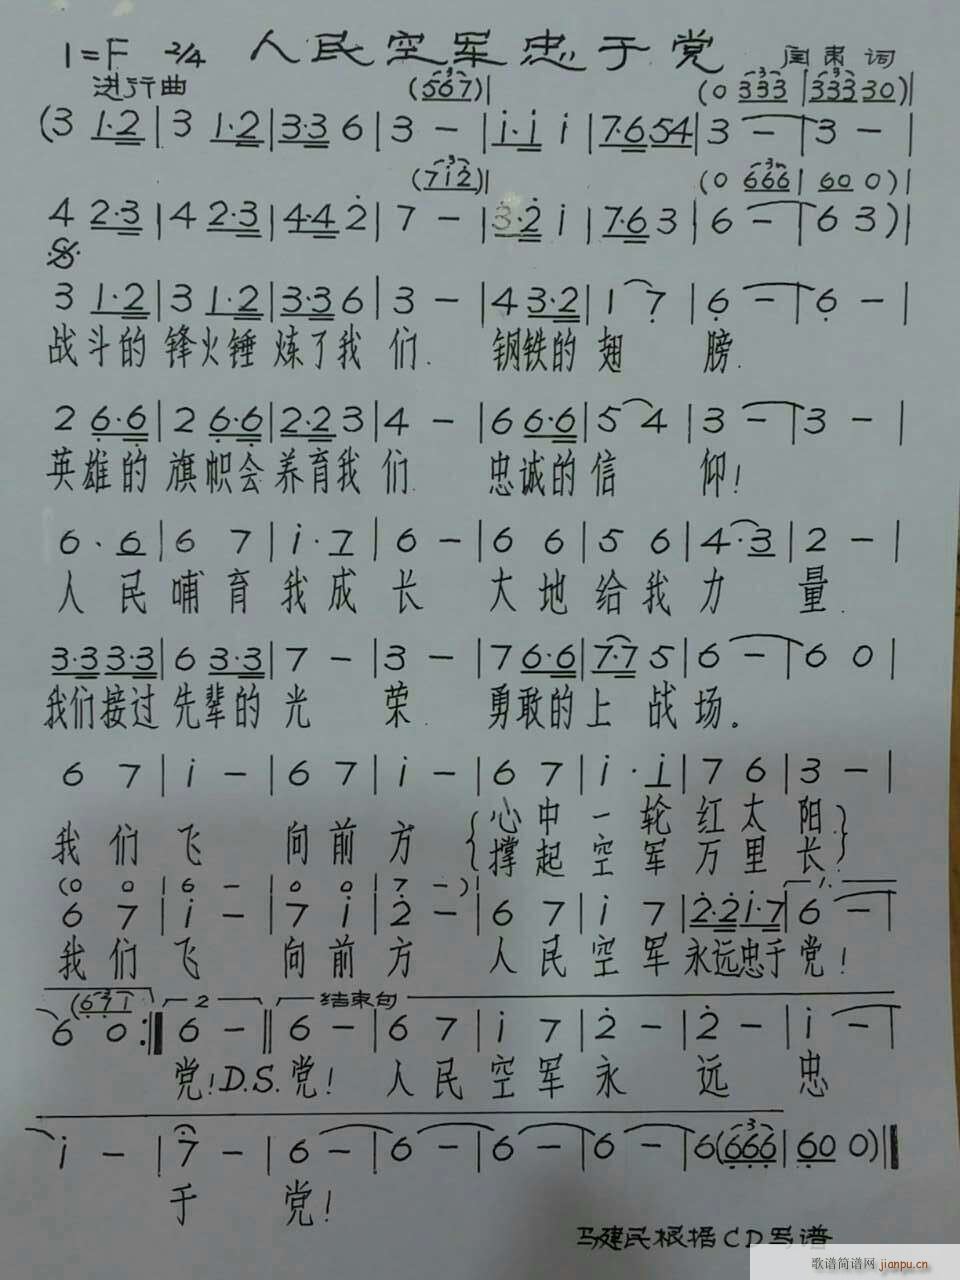 1=F 2/4 人民空军忠于党 闫肃 词
进行曲 (567)| (0 333|33330)|
(3 1·2|3 1·2|3·3 6|3 -|i·i i|7·654|3 -|3 -|
(7i2)| (0 666|60 0)|
4 2·3|4 2·3|4·4 2|7 -|3·2 i|7·6 3|6 -|6 3)|
3 1·2|3 1·2|3·3 6|3 -|4 3·2|1 7|6 -|6 -|
战斗的 锋火锤 炼了我们. 钢铁的翅 膀.
2 6·6|2 6·6|2·2 3|4 -|6 6·6|5 4|3 -|3 -|
英雄的 旗帜会 养育我们 忠诚的信 仰!
6 · 6|6 7|i · 7|6 -|6 6|5 6|4·3|2 -|
人 民 哺 育 我 成 长 大 地 给 我 力 量.
3·3 3·3|6 3·3|7 -|3 -|7 6·6|7·7 5|6 -|6 0|
我们接过 先辈的 光 荣. 勇敢的上 战 场。
6 7|i -|6 7|i -|6 7|i · i|7 6|3 -|
我 们 飞 向 前 方 {心 中 一 轮 红 太 阳}
{撑 起 空 军 万 里 长}
(0 0|6 -|0 0|7 -)| 1.
6 7|i -|7 i|2 -|6 7|i 7|2·2i·7|6 -|
我 们 飞 向 前 方 人 民 空 军 永远忠于 党!
(671) 2 结束句
6 0:‖6 -‖6 -|6 7|i 7|2 -|2 -|i -|
党! D.S. 党! 人 民 空 军 永 远 忠
i -|7 -|6 -|6 -|6 -|6 -|6(666|60 0)‖
于 党!
马建民根据CD写谱
歌谱简谱网 jianpu.cn